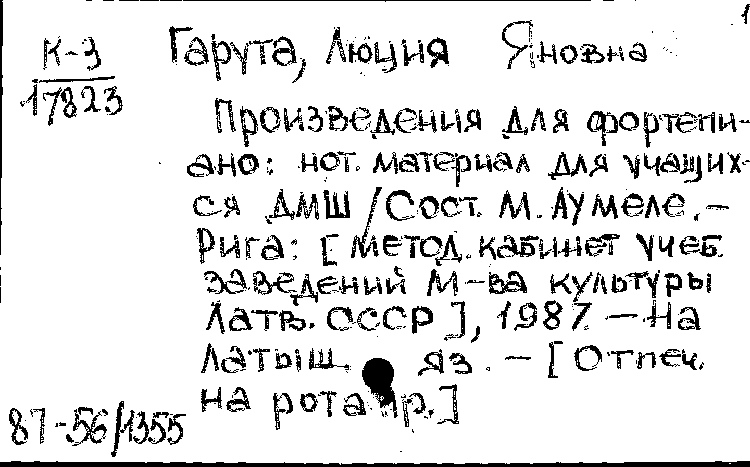 1
К-3 Гарута, Люция Яновна
17823
Произведения для фортепи-
ано: нот. материал для учащих-
ся ДМШ / Сост. М. Аумеле. –
Рига: [Метод. кабинет учеб.
заведений М-ва культуры
Латв. ССР], 1987. – На
латыш. яз. – [Отпеч.
на ротапр.]
87-56/1355